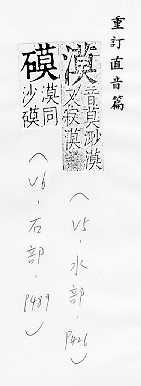 重訂直音篇
漠
音莫沙漠
又寂漠
(V5·水部·P426)
磆
漠同
沙磆
(V6·石部·P489)